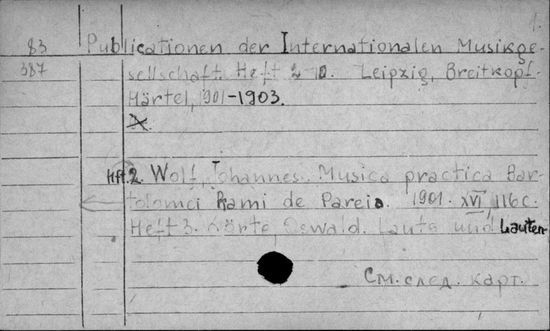 1.
83 Publicationen der Internationalen Musikge-
387 sellschaft. Heft 2 10. Leipzig, Breitkopf-
Härtel, 1901-1903.
Hft. 2. Wolf, Johannes. Musica practica Bar-
tolomei Rami de Pareia. 1901. XVI, 116 с.
Heft 3. Körte, Oswald. Laute und Lauten-
См. след. карт.